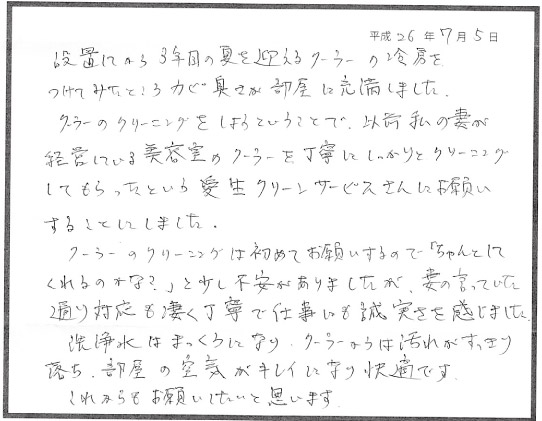 平成26年7月5日
設置してから3年目の夏を迎えるクーラーの冷房を
つけてみたところカビ臭さが部屋に充満しました。
クーラーのクリーニングをしようということで、以前私の妻が
経営している美容室のクーラーを丁寧にしっかりとクリーニング
してもらったという愛生クリーンサービスさんにお願い
することにしました。
クーラーのクリーニングは初めてお願いするので「ちゃんとして
くれるのかな?」と少し不安がありましたが、妻の言っていた
通り対応も凄く丁寧で仕事にも誠実さを感じました。
洗浄水はまっくろになり、クーラーからは汚れがすっきり
落ち、部屋の空気がキレイになり快適です。
これからもお願いしたいと思います。